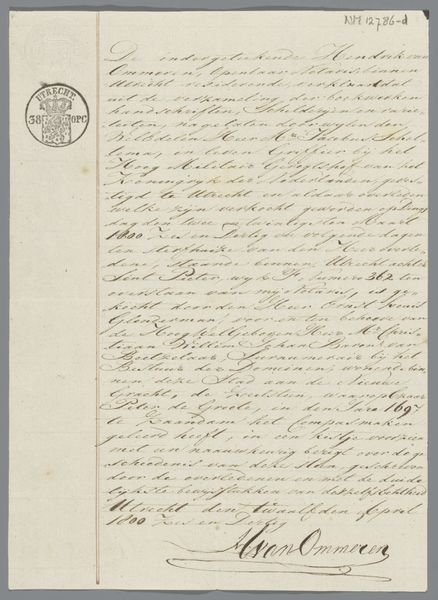 NM 12786-d
UTRECHT.
38 OPC
De ondergeteekende Hendrik van
Ommeren, Openbaar Notaris binnen
Utrecht resideerende, verklaard dat
uit de verzameling der boekwerken
handschriften Schilderijen en rarie-
teiten, nagelaten door wijlen den
WelEdelen Heer Mr.
in leven Griffier bij het
Hoog Militair Geregtshof van het
Koningrijk der Nederlanden, geves-
tigd te Utrecht en aldaar overleden
welke zijn verkocht geworden op Dings
dag den twee en twintigsten Maart
1800 Zes en Dertig en volgende dagen
ten sterfhuize van den Heer overle-
dene, staande binnen Utrecht achter
Sint Pieter, wijk F. numero 362 ten
overstaan van mij Notaris, is ge-
kocht door den Heer
voor en ten behoeve van
de Hoog WelGeboren Heer Mr. Chris-
tiaan Willem Johan Baron van
Boetzelaer, Surnumerair bij het
Bestuur der Domeinen, wonende bin-
nen deze Stad aan de Nieuwe
Gracht, de Zeebalsten, waarop Czaar
Peter de Groote, in den Jare 1697
te Zaandam het Compasmaken
geleerd heeft, in een kistje voorzien
met een naauwkeurig berigt voor de ge
schiedenis van deze geschreven
door de overledenen en met de duide
lijkste bewijsstukken van derzelver echtheid
Utrecht den twaalfden April
1800 Zes en Dertig
HvanOmmeren